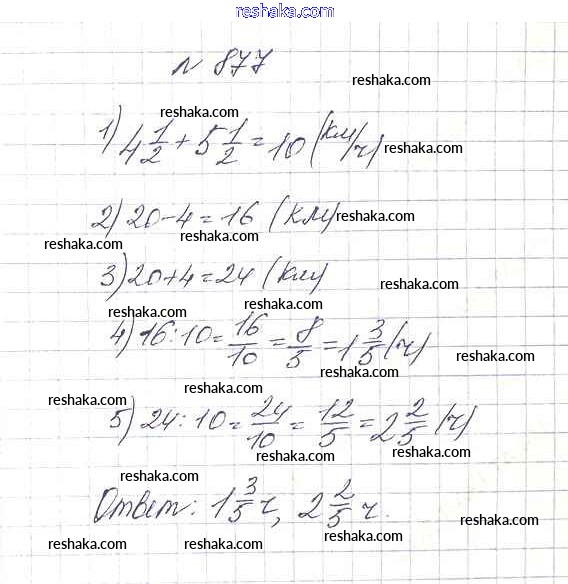 reshaka.com
№ 877
reshaka.com
reshaka.com
1) 4 1/2 + 5 1/2 = 10 (км/ч)
reshaka.com
2) 20-4=16 (км)
reshaka.com
reshaka.com
reshaka.com
3) 20+4=24 (км)
reshaka.com
reshaka.com
reshaka.com
4) 16:10= 16/10 = 8/5 = 1 3/5 (ч)
reshaka.com
reshaka.com
reshaka.com
reshaka.com
5) 24:10= 24/10 = 12/5 = 2 2/5 (ч)
reshaka.com
reshaka.com
reshaka.com
reshaka.com
Ответ: 1 3/5 ч, 2 2/5 ч.
reshaka.com
reshaka.com
reshaka.com
reshaka.com